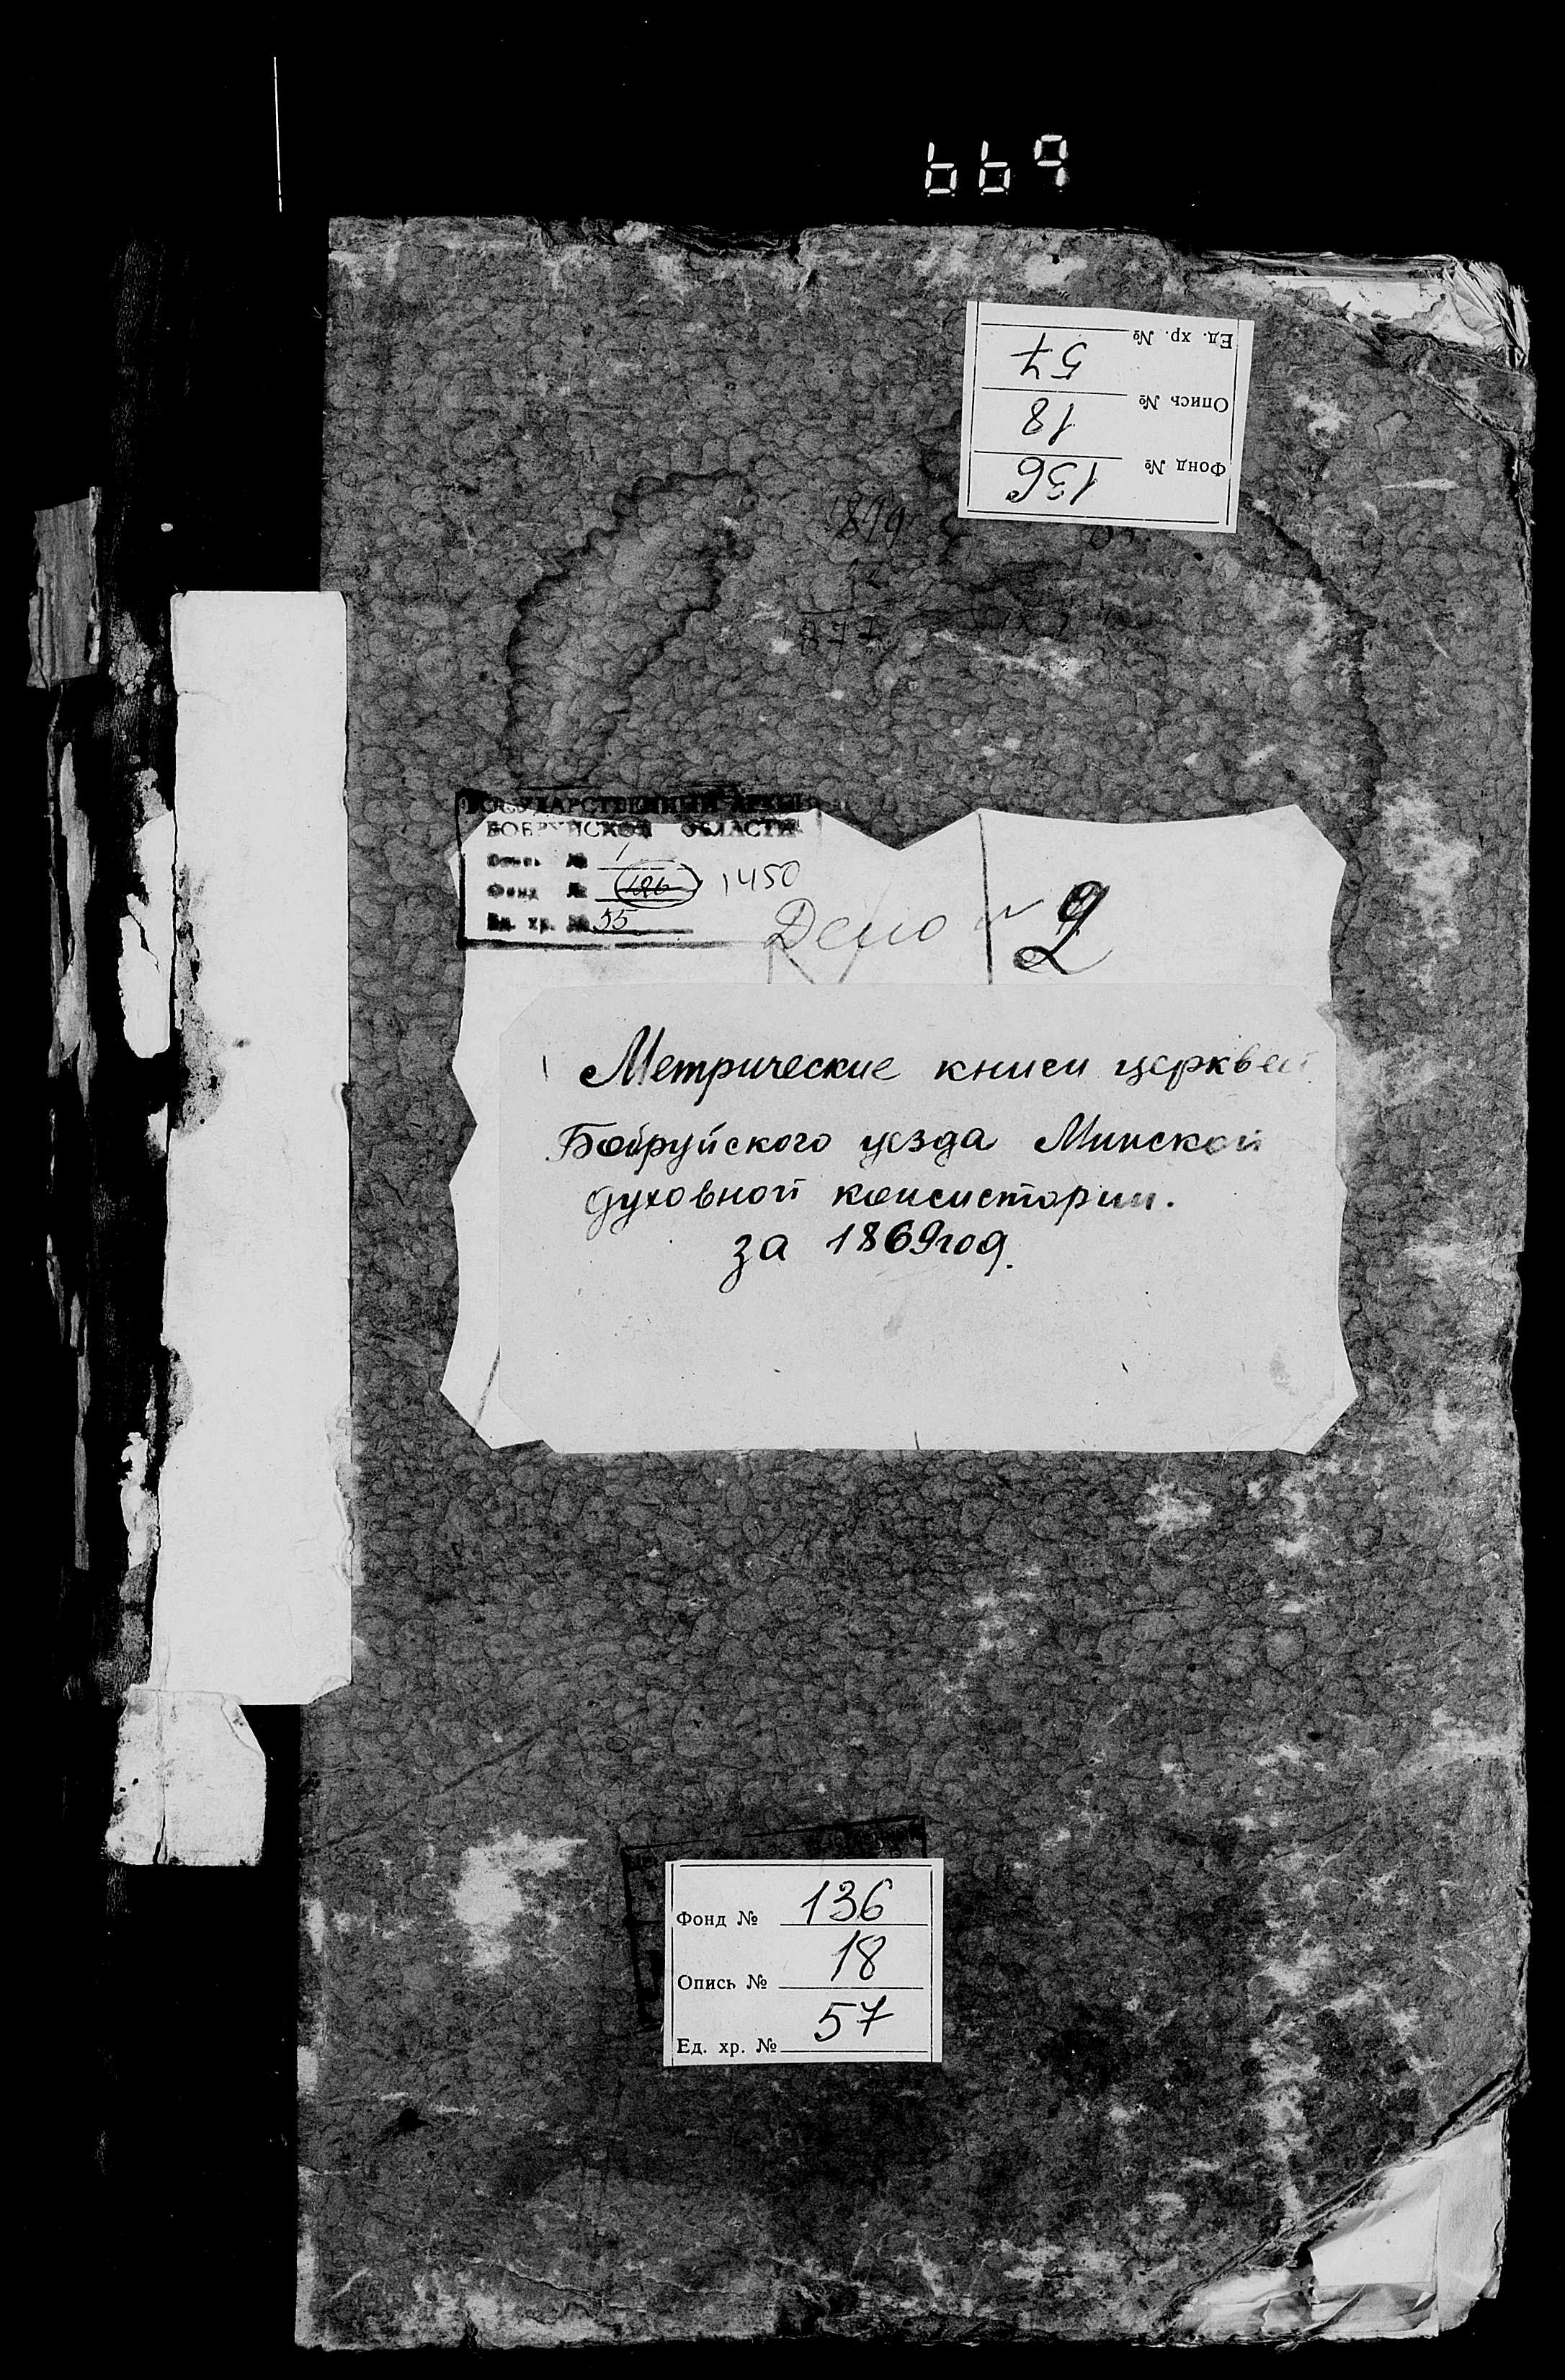 669
Ед. хр. № 57
Опись № 18
Фонд № 136
ГОСУДАРСТВЕННЫЙ АРХИВ
БОБРУЙСКОЙ ОБЛАСТИ
Опись № 1
Фонд № 1450
Ед. хр. № 55
Дело № 2
Метрические книги церквей
Бобруйского уезда Минской
духовной консистории.
за 1869 год.
Фонд № 136
Опись № 18
Ед. хр. № 57